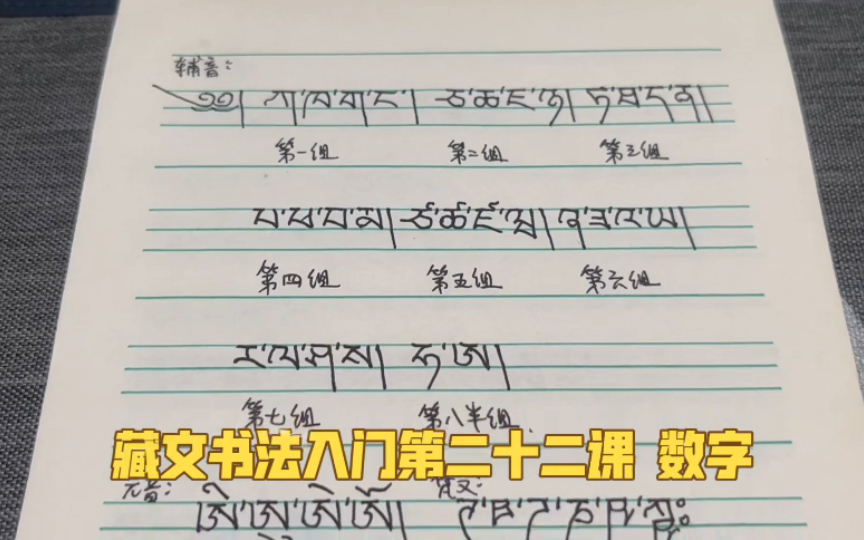 辅音:
༄༅། ཀ་ཁ་ག་ང་། ཅ་ཆ་ཇ་ཉ། ཏ་ཐ་ད་ན།
第一组 第二组 第三组
པ་ཕ་བ་མ། ཙ་ཚ་ཛ་ཝ། ཞ་ཟ་འ་ཡ།
第四组 第五组 第六组
ར་ལ་ཤ་ས། ཧ་ཨ།
第七组 第八半组.
藏文书法入门第二十二课 数字
元音: 梵文:
ཨི་ཨུ་ཨེ་ཨོ།